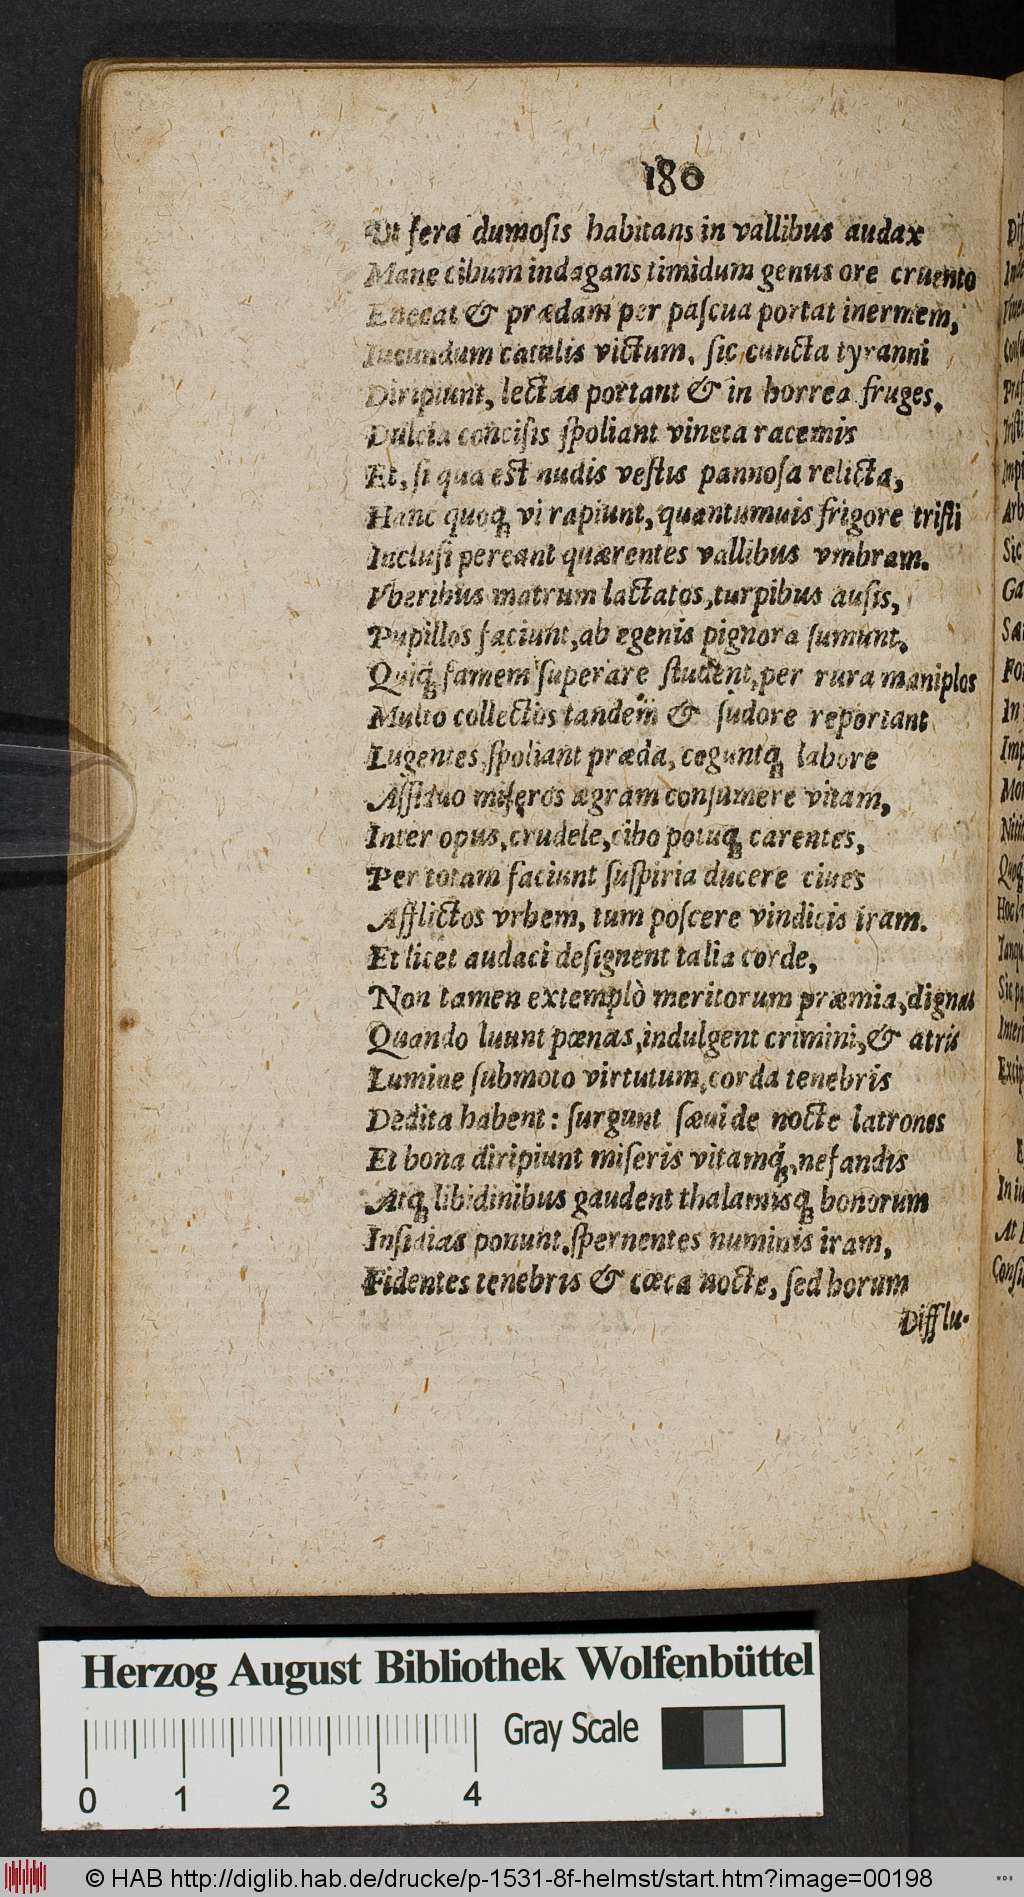 180
Ut fera dumoſis habitans in vallibus audax
Mane cibum indagans timidum genus ore cruento
Enecat & prædam per paſcua portat inermem,
Iucundum catulis victum. ſic cuncta tyranni
Diripiunt, lectas portant & in horrea fruges.
Dulcia conciſis ſpoliant vineta racemis
Et, ſi qua est nudis veſtis pannoſa relicta,
Hanc quoq́; vi rapiunt, quantumuis frigore triſti
Incluſi pereant quærentes vallibus vmbram.
Vberibus matrum lactatos, turpibus auſis,
Pupillos faciunt, ab egenis pignora ſumunt.
Quiq́; famem ſuperare ſtudent, per rura maniplos
Multo collectos tandem & ſudore reportant
Lugentes ſpoliant præda, coguntq́; labore
Aſſiduo miſeros ægram conſumere vitam,
Inter opus, crudele, cibo potuq́; carentes,
Per totam faciunt ſuſpiria ducere ciues
Afflictos vrbem, tum poſcere vindicis iram.
Et licet audaci deſignent talia corde,
Non tamen extemplò meritorum præmia, dignas
Quando luunt pœnas, indulgent crimini, & atris
Lumine ſubmoto virtutum, corda tenebris
Dedita habent: ſurgunt ſæui de nocte latrones
Et bona diripiunt miſeris vitamq́;, nefandis
Atq́; libidinibus gaudent thalamisq́; bonorum
Inſidias ponunt. ſpernentes numinis iram,
Fidentes tenebris & cœca nocte, ſed horum
Difflu-
Herzog August Bibliothek Wolfenbüttel
Gray Scale
0 1 2 3 4
© HAB http://diglib.hab.de/drucke/p-1531-8f-helmst/start.htm?image=00198